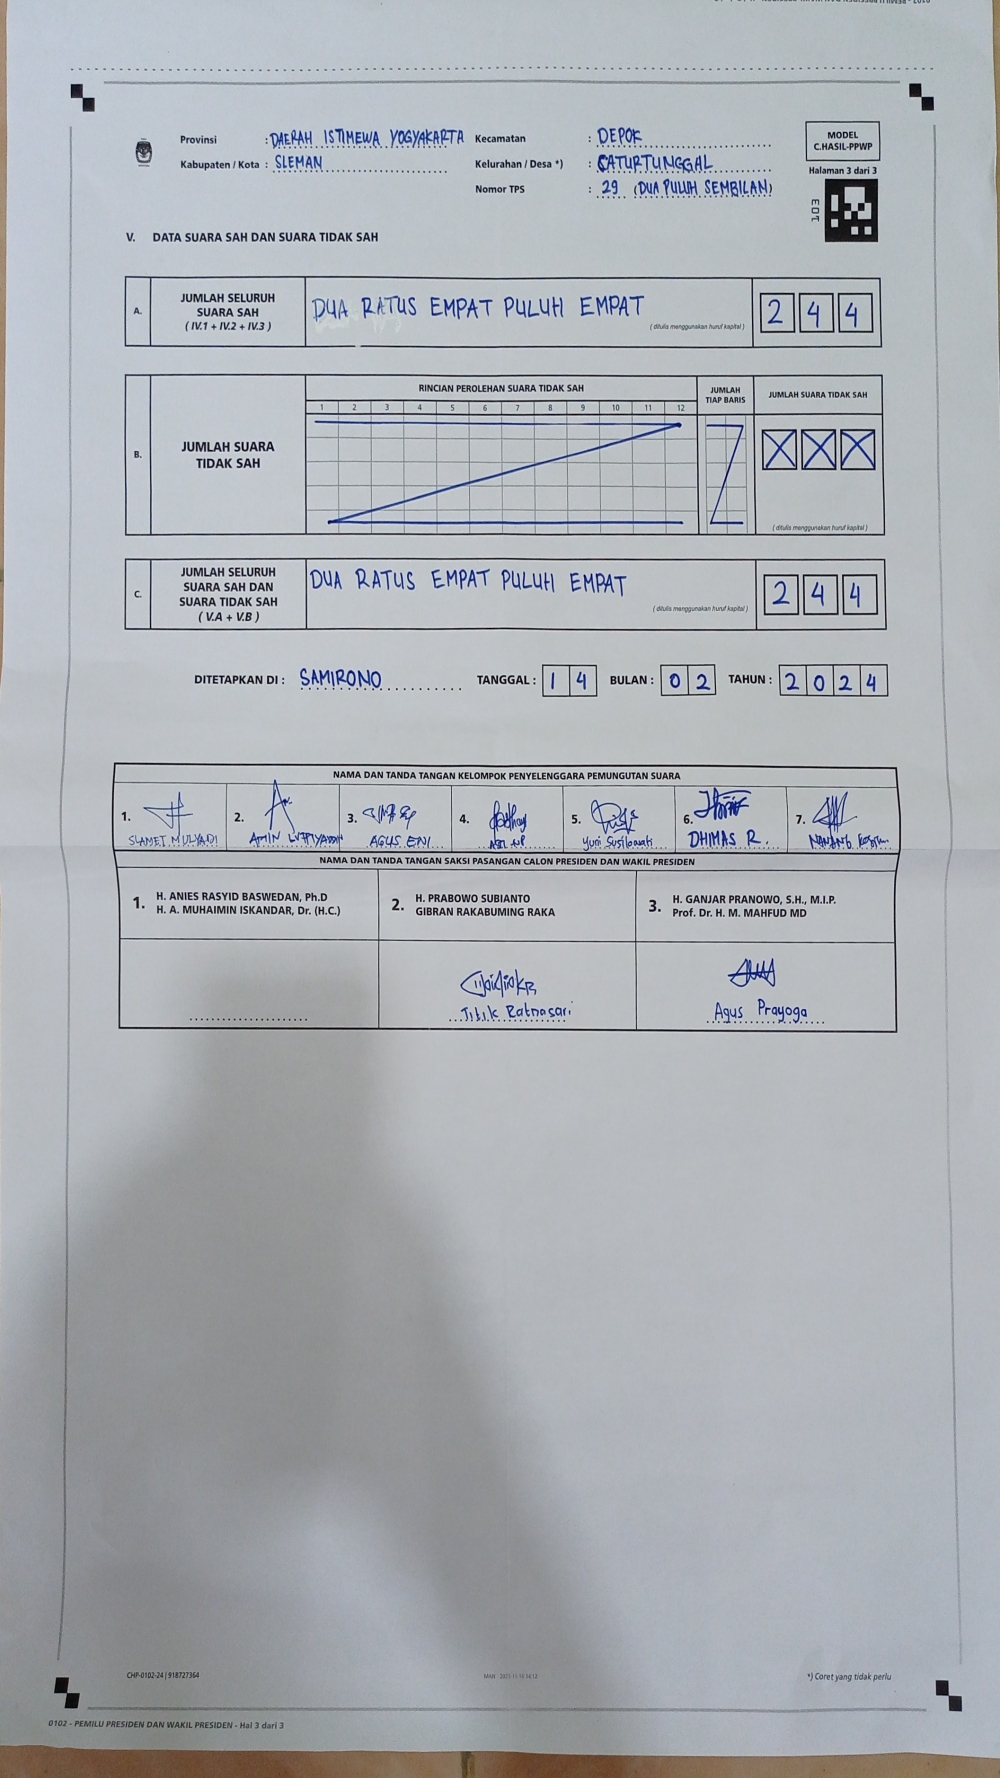 Provinsi : DAERAH ISTIMEWA YOGYAKARTA Kecamatan : DEPOK
Kabupaten / Kota : SLEMAN Kelurahan / Desa *) : CATURTUNGGAL
Nomor TPS : 29 (DUA PULUH SEMBILAN)
MODEL
C.HASIL-PPWP
Halaman 3 dari 3
V. DATA SUARA SAH DAN SUARA TIDAK SAH
A. JUMLAH SELURUH
SUARA SAH
( IV.1 + IV.2 + IV.3 )
DUA RATUS EMPAT PULUH EMPAT
( ditulis menggunakan huruf kapital )
2 4 4
B. JUMLAH SUARA
TIDAK SAH
RINCIAN PEROLEHAN SUARA TIDAK SAH
1 2 3 4 5 6 7 8 9 10 11 12
JUMLAH
TIAP BARIS
JUMLAH SUARA TIDAK SAH
X X X
( ditulis menggunakan huruf kapital )
C. JUMLAH SELURUH
SUARA SAH DAN
SUARA TIDAK SAH
( V.A + V.B )
DUA RATUS EMPAT PULUH EMPAT
( ditulis menggunakan huruf kapital )
2 4 4
DITETAPKAN DI : SAMIRONO TANGGAL : 1 4 BULAN : 0 2 TAHUN : 2 0 2 4
NAMA DAN TANDA TANGAN KELOMPOK PENYELENGGARA PEMUNGUTAN SUARA
1. 2. 3. 4. 5. 6. 7.
SLAMET MULYADI AMIN AGUS ENI Yuni Susilowati DHIMAS R. NANANG
NAMA DAN TANDA TANGAN SAKSI PASANGAN CALON PRESIDEN DAN WAKIL PRESIDEN
1. H. ANIES RASYID BASWEDAN, Ph.D
H. A. MUHAIMIN ISKANDAR, Dr. (H.C.)
2. H. PRABOWO SUBIANTO
GIBRAN RAKABUMING RAKA
3. H. GANJAR PRANOWO, S.H., M.I.P.
Prof. Dr. H. M. MAHFUD MD
Titik Ratnasari
Agus Prayoga
CHP-0102-24 | 918727364
*) Coret yang tidak perlu
0102 - PEMILU PRESIDEN DAN WAKIL PRESIDEN - Hal 3 dari 3